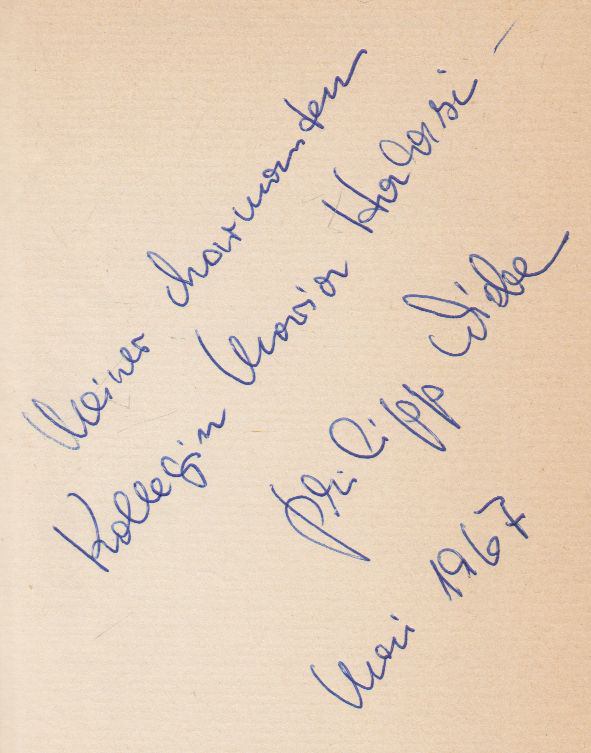 Meiner charmanten
Kollegin Maria Halasi –
Philipp Wiebe
Mai 1967